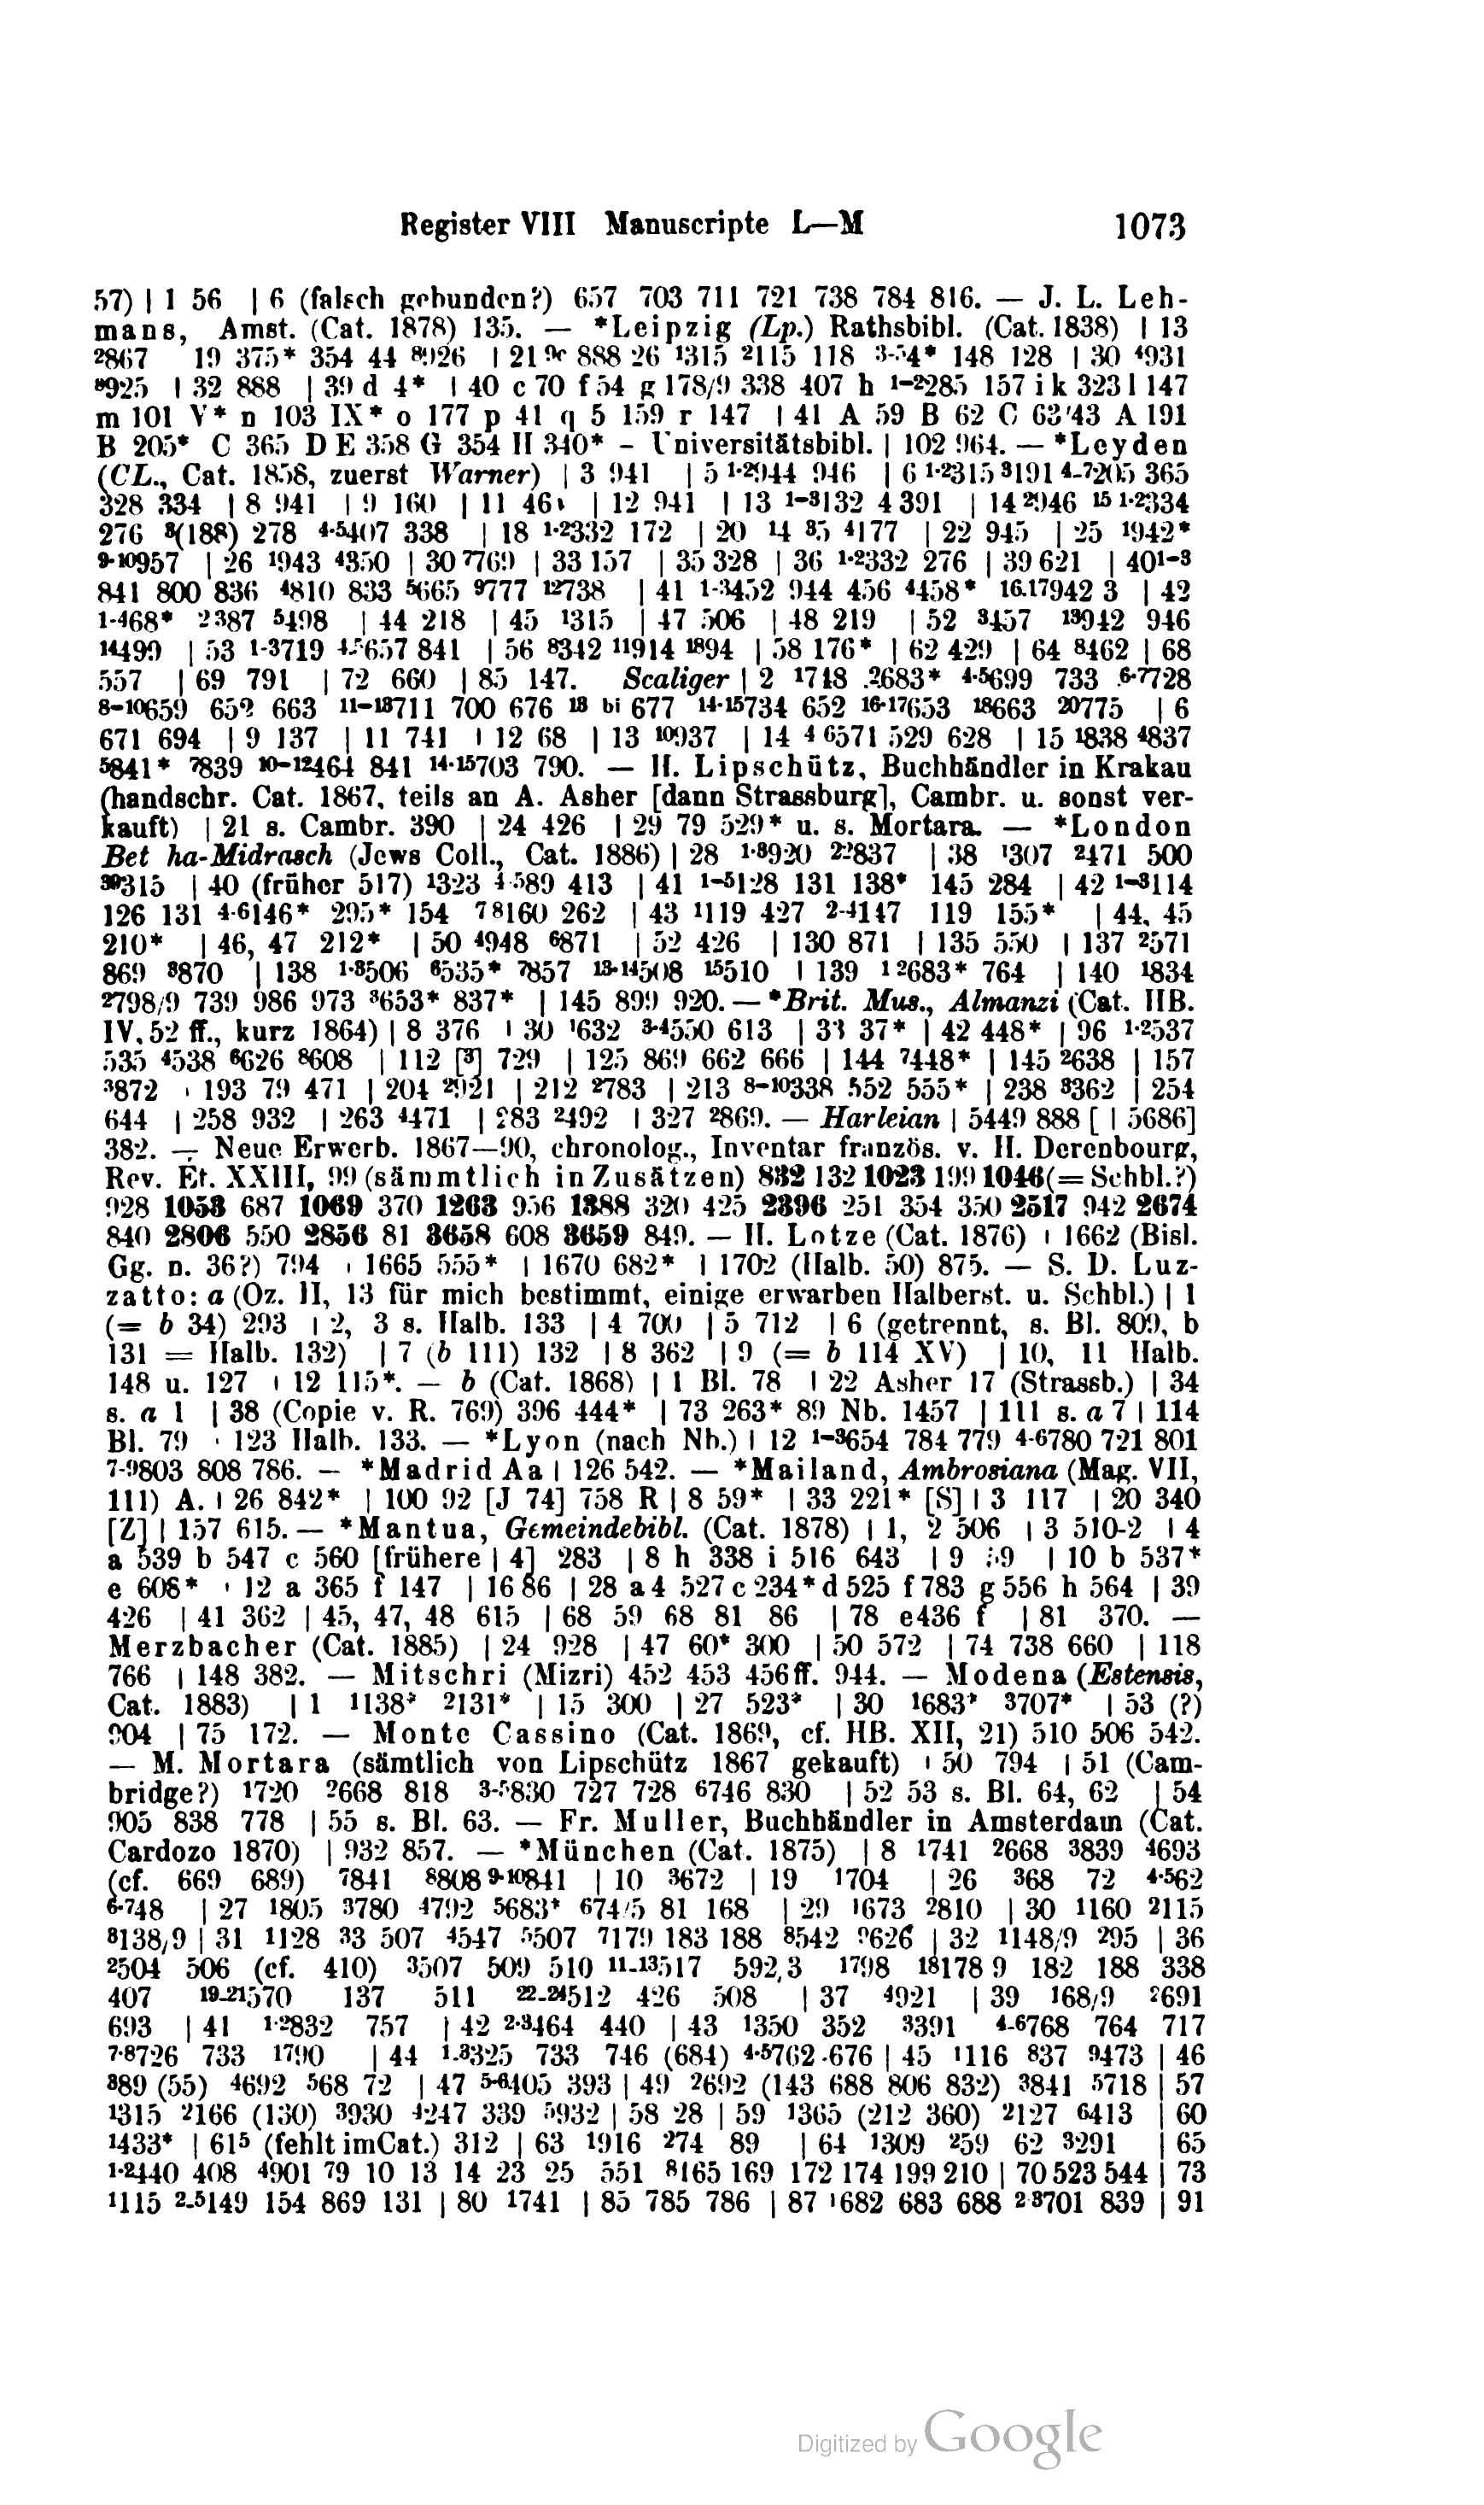 Register VIII Manuscripte L—M 1073
57) | 1 56 | 6 (falsch gebunden?) 657 703 711 721 738 784 816. — J. L. Leh-
mans, Amst. (Cat. 1878) 135. — *Leipzig (Lp.) Rathsbibl. (Cat. 1838) | 13
²867 19 375* 354 44 ⁸926 | 21 888 26 ¹315 ²115 118 ³⁻⁵4* 148 128 | 30 ⁴931
⁸925 | 32 888 | 39 d 4* | 40 c 70 f 54 g 178/9 338 407 h ¹⁻²285 157 i k 323 l 147
m 101 V* n 103 IX* o 177 p 41 q 5 159 r 147 | 41 A 59 B 62 C 63 43 A 191
B 205* C 365 D E 358 G 354 H 340* – Universitätsbibl. | 102 964. — *Leyden
(CL., Cat. 1858, zuerst Warner) | 3 941 | 5 ¹·²944 946 | 6 ¹·²315 ³191 ⁴⁻⁷205 365
328 334 | 8 941 | 9 160 | 11 46 | 12 941 | 13 ¹⁻³132 4 391 | 14 ²946 15 ¹·²334
276 ³(188) 278 ⁴·⁵407 338 | 18 ¹·²332 172 | 20 ¹4 ³5 ⁴177 | 22 945 | 25 ¹942*
⁹·¹⁰957 | 26 ¹943 ⁴350 | 30 ⁷769 | 33 157 | 35 328 | 36 ¹·²332 276 | 39 621 | 40¹⁻³
841 800 836 ⁴810 833 ⁵665 ⁹777 ¹²738 | 41 ¹⁻³452 944 456 ⁴458* ¹⁶·¹⁷942 3 | 42
¹·⁴68* ²387 ⁵498 | 44 218 | 45 ¹315 | 47 506 | 48 219 | 52 ³457 ¹³942 946
¹⁴499 | 53 ¹·³719 ⁴·⁵657 841 | 56 ⁸342 ¹¹914 ¹⁸94 | 58 176* | 62 429 | 64 ⁸462 | 68
557 | 69 791 | 72 660 | 85 147. Scaliger | 2 ¹718 ²683* ⁴·⁵699 733 ⁶·⁷728
⁸⁻¹⁰659 652 663 ¹¹⁻¹³711 700 676 ¹³ bi 677 ¹⁴·¹⁵734 652 ¹⁶·¹⁷653 ¹⁸663 ²⁰775 | 6
671 694 | 9 137 | 11 741 | 12 68 | 13 ¹⁰937 | 14 ⁴ ⁶571 529 628 | 15 ¹838 ⁴837
⁵841* ⁷839 ¹⁰⁻¹²464 841 ¹⁴·¹⁵703 790. — H. Lipschütz, Buchhändler in Krakau
(handschr. Cat. 1867, teils an A. Asher [dann Strassburg], Cambr. u. sonst ver-
kauft) | 21 s. Cambr. 390 | 24 426 | 29 79 529* u. s. Mortara. — *London
Bet ha-Midrasch (Jews Coll., Cat. 1886) | 28 ¹·³920 837 | 38 ¹307 ²471 500
315 | 40 (früher 517) ¹323 ⁴·⁵89 413 | 41 ¹⁻⁵128 131 138* 145 284 | 42 ¹⁻³114
126 131 ⁴·⁶146* 295* 154 ⁷ ⁸160 262 | 43 ¹119 427 ²⁻⁴147 119 155* | 44, 45
210* | 46, 47 212* | 50 ⁴948 ⁶871 | 52 426 | 130 871 | 135 550 | 137 ²571
869 ³870 | 138 ¹·³506 ⁶535* ⁷857 ¹³·¹⁴508 ¹⁵510 | 139 ¹ ²683* 764 | 140 ¹834
²798/9 739 986 973 ³653* 837* | 145 899 920. — *Brit. Mus., Almanzi (Cat. HB.
IV, 52 ff., kurz 1864) | 8 376 | 30 ¹632 ³·⁴550 613 | 33 37* | 42 448* | 96 ¹·²537
535 ⁴538 ⁶626 ⁸608 | 112 [³] 729 | 125 869 662 666 | 144 ⁷448* | 145 ²638 | 157
³872 | 193 79 471 | 204 ²921 | 212 ²783 | 213 ⁸⁻¹⁰338 552 555* | 238 ³362 | 254
644 | 258 932 | 263 ⁴471 | 283 ²492 | 327 ²869. — Harleian | 5449 888 [ | 5686]
382. — Neue Erwerb. 1867—90, chronolog., Inventar französ. v. H. Derenbourg,
Rev. Ét. XXIII, 99 (sämmtlich in Zusätzen) 832 132 1023 199 1046 (= Schbl.?)
928 1053 687 1069 370 1263 956 1388 320 425 2396 251 354 350 2517 942 2674
840 2806 550 2856 81 3658 608 3659 849. — H. Lotze (Cat. 1876) | 1662 (Bisl.
Gg. n. 36?) 794 | 1665 555* | 1670 682* | 1702 (Halb. 50) 875. — S. D. Luz-
zatto: a (Oz. II, 13 für mich bestimmt, einige erwarben Halberst. u. Schbl.) | 1
(= b 34) 293 | 2, 3 s. Halb. 133 | 4 700 | 5 712 | 6 (getrennt, s. Bl. 809, b
131 = Halb. 132) | 7 (b 111) 132 | 8 362 | 9 (= b 114 XV) | 10, 11 Halb.
148 u. 127 | 12 115*. — b (Cat. 1868) | 1 Bl. 78 | 22 Asher 17 (Strassb.) | 34
s. a 1 | 38 (Copie v. R. 769) 396 444* | 73 263* 89 Nb. 1457 | 111 s. a 7 | 114
Bl. 79 | 123 Halb. 133. — *Lyon (nach Nb.) | 12 ¹⁻³654 784 779 ⁴·⁶780 721 801
⁷·⁹803 808 786. — *Madrid Aa | 126 542. — *Mailand, Ambrosiana (Mag. VII,
111) A. | 26 842* | 100 92 [J 74] 758 R | 8 59* | 33 221* [S] | 3 117 | 20 340
[Z] | 157 615. — *Mantua, Gemeindebibl. (Cat. 1878) | 1, 2 506 | 3 510-2 | 4
a 539 b 547 c 560 [frühere | 4] 283 | 8 h 338 i 516 643 | 9 | 10 b 537*
e 608* | 12 a 365 f 147 | 16 86 | 28 a 4 527 c 234* d 525 f 783 g 556 h 564 | 39
426 | 41 362 | 45, 47, 48 615 | 68 59 68 81 86 | 78 e 436 f | 81 370. —
Merzbacher (Cat. 1885) | 24 928 | 47 60* 300 | 50 572 | 74 738 660 | 118
766 | 148 382. — Mitschri (Mizri) 452 453 456 ff. 944. — Modena (Estensis,
Cat. 1883) | 1 ¹138* ²131* | 15 300 | 27 523* | 30 ¹683* ³707* | 53 (?)
904 | 75 172. — Monte Cassino (Cat. 1869, cf. HB. XII, 21) 510 506 542.
— M. Mortara (sämtlich von Lipschütz 1867 gekauft) | 50 794 | 51 (Cam-
bridge?) ¹720 ²668 818 ³·⁵830 727 728 ⁶746 830 | 52 53 s. Bl. 64, 62 | 54
905 838 778 | 55 s. Bl. 63. — Fr. Muller, Buchhändler in Amsterdam (Cat.
Cardozo 1870) | 932 857. — *München (Cat. 1875) | 8 ¹741 ²668 ³839 ⁴693
(cf. 669 689) ⁷841 ⁸808 ⁹·¹⁰841 | 10 ³672 | 19 ¹704 | 26 368 72 ⁴·⁵62
⁶·⁷48 | 27 ¹805 ³780 ⁴792 ⁵683* 674/5 81 168 | 29 ¹673 ²810 | 30 ¹160 ²115
⁸138/9 | 31 ¹128 ³3 507 ⁴547 ⁵507 ⁷179 183 188 ⁸542 ⁹626 | 32 ¹148/9 ²95 | 36
²504 506 (cf. 410) ³507 509 510 ¹¹⁻¹³517 592,3 ¹⁷98 ¹⁸178 9 182 188 338
407 ¹⁹⁻²¹570 137 511 ²²⁻²⁴512 426 508 | 37 ⁴921 | 39 ¹68/9 ²691
693 | 41 ¹·²832 757 | 42 ²·³464 440 | 43 ¹350 352 ³391 ⁴⁻⁶768 764 717
⁷·⁸726 733 ¹⁷90 | 44 ¹⁻³325 733 746 (684) ⁴·⁵762 676 | 45 ¹116 837 ⁹473 | 46
³89 (55) ⁴692 ⁵68 72 | 47 ⁵·⁶405 393 | 49 ²692 (143 688 806 832) ³841 ⁵718 | 57
¹315 ²166 (130) ³930 ⁴247 339 ⁵932 | 58 28 | 59 ¹365 (212 360) ²127 ⁶413 | 60
¹433* | 61⁵ (fehlt im Cat.) 312 | 63 ¹916 ²74 89 | 64 ¹309 ²59 62 ³291 | 65
¹·²440 408 ⁴901 79 10 13 14 23 25 551 ⁸165 169 172 174 199 210 | 70 523 544 | 73
¹115 ²⁻⁵149 154 869 131 | 80 ¹741 | 85 785 786 | 87 ¹682 683 688 ² ³701 839 | 91
Digitized by Google